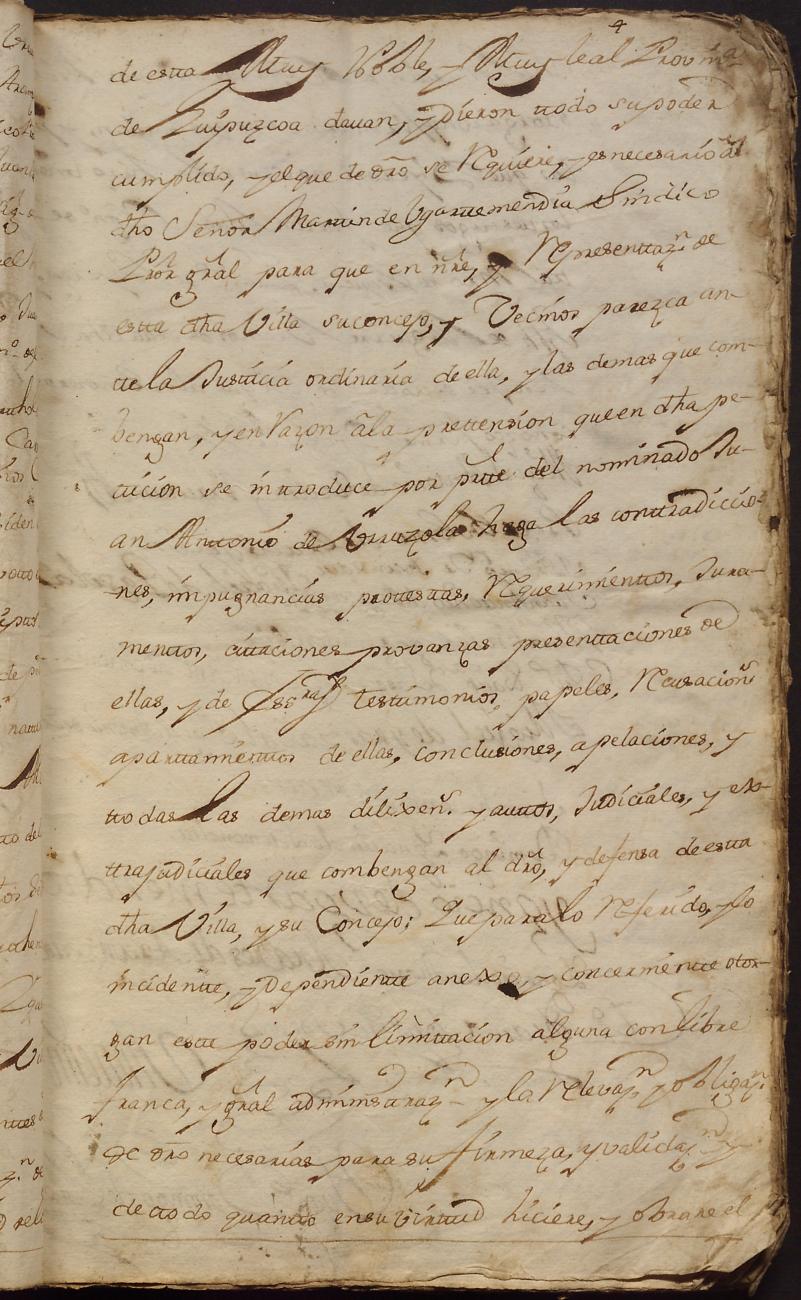 4
de esta Muy Noble, y Muy leal Provinᵃ
de Guipuzcoa davan, y dieron ttodo su poder
cumplido, y el que de dr̃o se Requiere, y es necesario al
dho Señor Martin de Ugartemendia Sindico
Pror gr̃al para que en nr̃e, y Representtazⁿ de
estta dha Villa su concejo, y Vecinos parezca an-
tte la Justicia ordinaria de ella, y las demas que com-
bengan, y en Razon â la prettension que en dha pe-
ticion se inttroduce por ptte del nominado Ju-
an Anttonio de Urruzola haga las conttradiccio-
nes, impugnancias protesttas, Requerimienttos, Jura-
menttos, cittaciones provanzas presenttaciones de
ellas, y de Essʳᵃˢ testimonios, papeles, Recusacionˢ
aparttamienttos de ellas, conclusiones, apelaciones, y
ttodas las demas dilixenˢ. y auttos, Judiciales, y ex-
ttrajudiciales que combengan al dr̃o, y defensa de estta
dha Villa, y su Concejo: Que para lo Referido, y lo
incidentte, y Dependientte anexo, y concernientte otor-
gan estte poder sin limittacion alguna con libre
franca, y gr̃al administrazⁿ y la Relevazⁿ y obligazⁿ
de dr̃o necesarias para su firmeza, y validazⁿ y
de ttodo quantto en su virttud hiciere, y obrare el